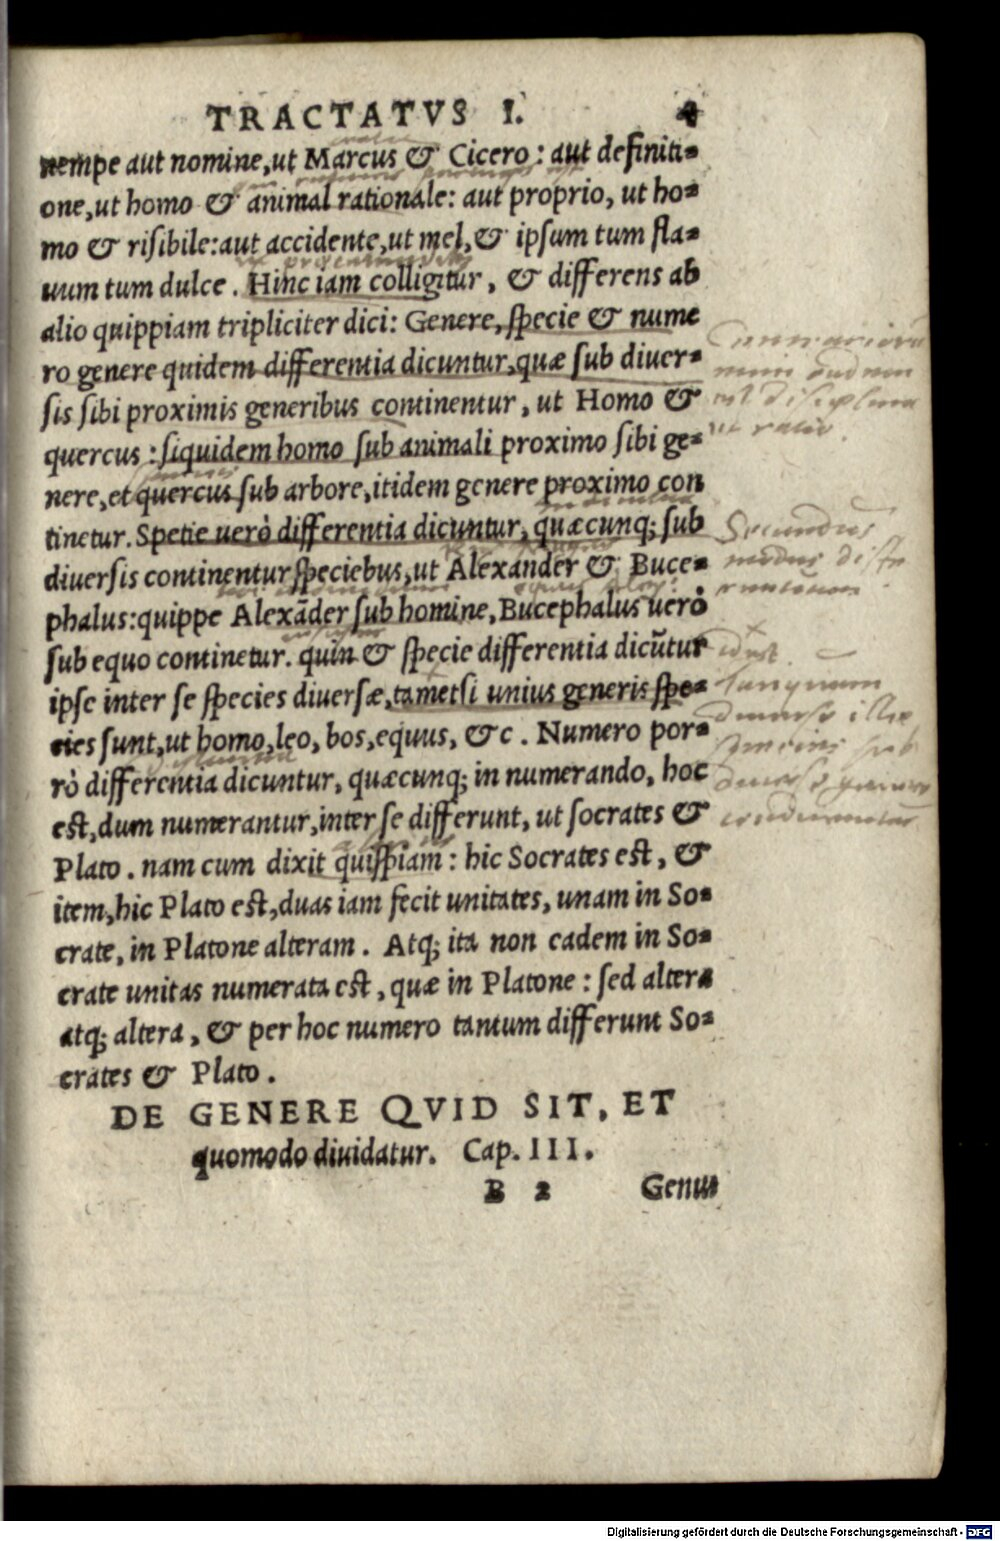 TRACTATVS I. 4
nempe aut nomine, ut Marcus & Cicero: aut definiti-
one, ut homo & animal rationale: aut proprio, ut ho-
mo & risibile: aut accidente, ut mel, & ipsum tum fla-
uum tum dulce. Hinc iam colligitur, & differens ab
alio quippiam tripliciter dici: Genere, specie & nume
ro genere quidem differentia dicuntur, quæ sub diuer-
sis sibi proximis generibus continentur, ut Homo &
quercus: siquidem homo sub animali proximo sibi ge-
nere, et quercus sub arbore, itidem genere proximo con
tinetur. Spetie uerò differentia dicuntur, quæcunq; sub
diuersis continentur speciebus, ut Alexander & Buce-
phalus: quippe Alexãder sub homine, Bucephalus uerò
sub equo continetur. quin & specie differentia dicũtur
ipse inter se species diuersæ, tametsi unius generis spe-
cies sunt, ut homo, leo, bos, equus, &c. Numero por-
rò differentia dicuntur, quæcunq; in numerando, hoc
est, dum numerantur, inter se differunt, ut socrates &
Plato. nam cum dixit quispiam: hic Socrates est, &
item, hic Plato est, duas iam fecit unitates, unam in So-
crate, in Platone alteram. Atq; ita non eadem in So-
crate unitas numerata est, quæ in Platone: sed altera
atq; altera, & per hoc numero tantum differunt So-
crates & Plato.
DE GENERE QVID SIT, ET
quomodo diuidatur. Cap. III.
B 2 Genus
Secundus
modus diffe
rentium
idest
tanquam
Digitalisierung gefördert durch die Deutsche Forschungsgemeinschaft - DFG